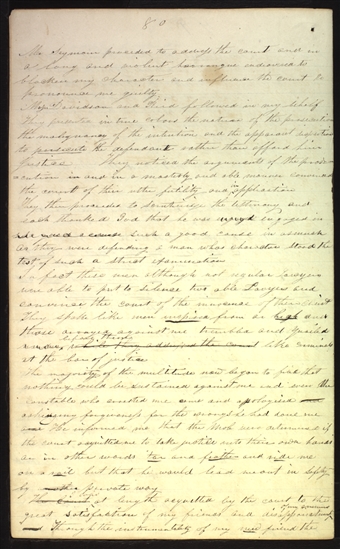 80
Mr Seymour proceeded to address the court and in
a long and violent harangue endeavored to
blacken my character and influence the court to
pronounce me guilty.
Messrs Davidson and Reid followed in my behalf
They in true colors the nature of the prosecution
the malignancy of the intention and the apparent disposition
to persecute the defendant rather than afford him
Justice. They noticed the arguments of the prose-
cution in and in a masterly and able manner convinced
the court of their utter futility and in application
They then proceeded to scrutinize the testimony and
each thanked God that he was engaged in
such a good cause in as much
as they were defending a man whose character stood the
test of such a strict examination
In fact these men although not regular lawyers
were able to put to silence two able Lawyers and
convince the court of the innocence of their client
They spoke like men inspired from on high and
those arrayed against me trembled and quailed
like criminals
at the bar of justice
The majority of the multitude now began to find that
nothing could be sustained against me and even the
Constable who arrested me came and apologised
asking my forgiveness for the wrongs he had done me
and He informed me that the Mob were determined if
the court acquitted me to take justice into their own hands
or in other words tar and feather and ride me
on a rail but that he would lead me out in safety
by private way
at length acquitted by the court to the
great satisfaction of my friends and disappointment
Through the instrumentality of my new friend the